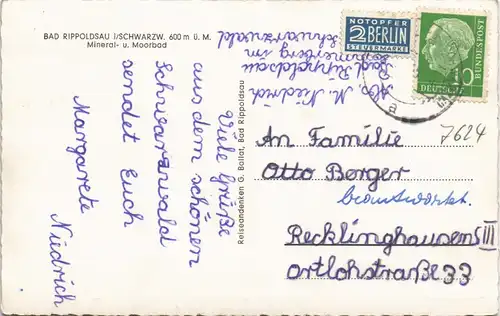 BAD RIPPOLDSAU I/SCHWARZW. 600 m ü. M.
Mineral- u. Moorbad
Viele Grüße
aus dem schönen
Schwarzwald
sendet Euch
Margarete
Niedrich
Abs. M. Niedrich
Bad Rippoldsau
im
Schwarzwald
Reiseandenken G. Ballat, Bad Rippoldsau
NOTOPFER
2 BERLIN
STEUERMARKE
10
DEUTSCHE
BUNDESPOST
7624
An Familie
Otto Berger
beantwortet
Recklinghausen S III
Ortlohstraße 33